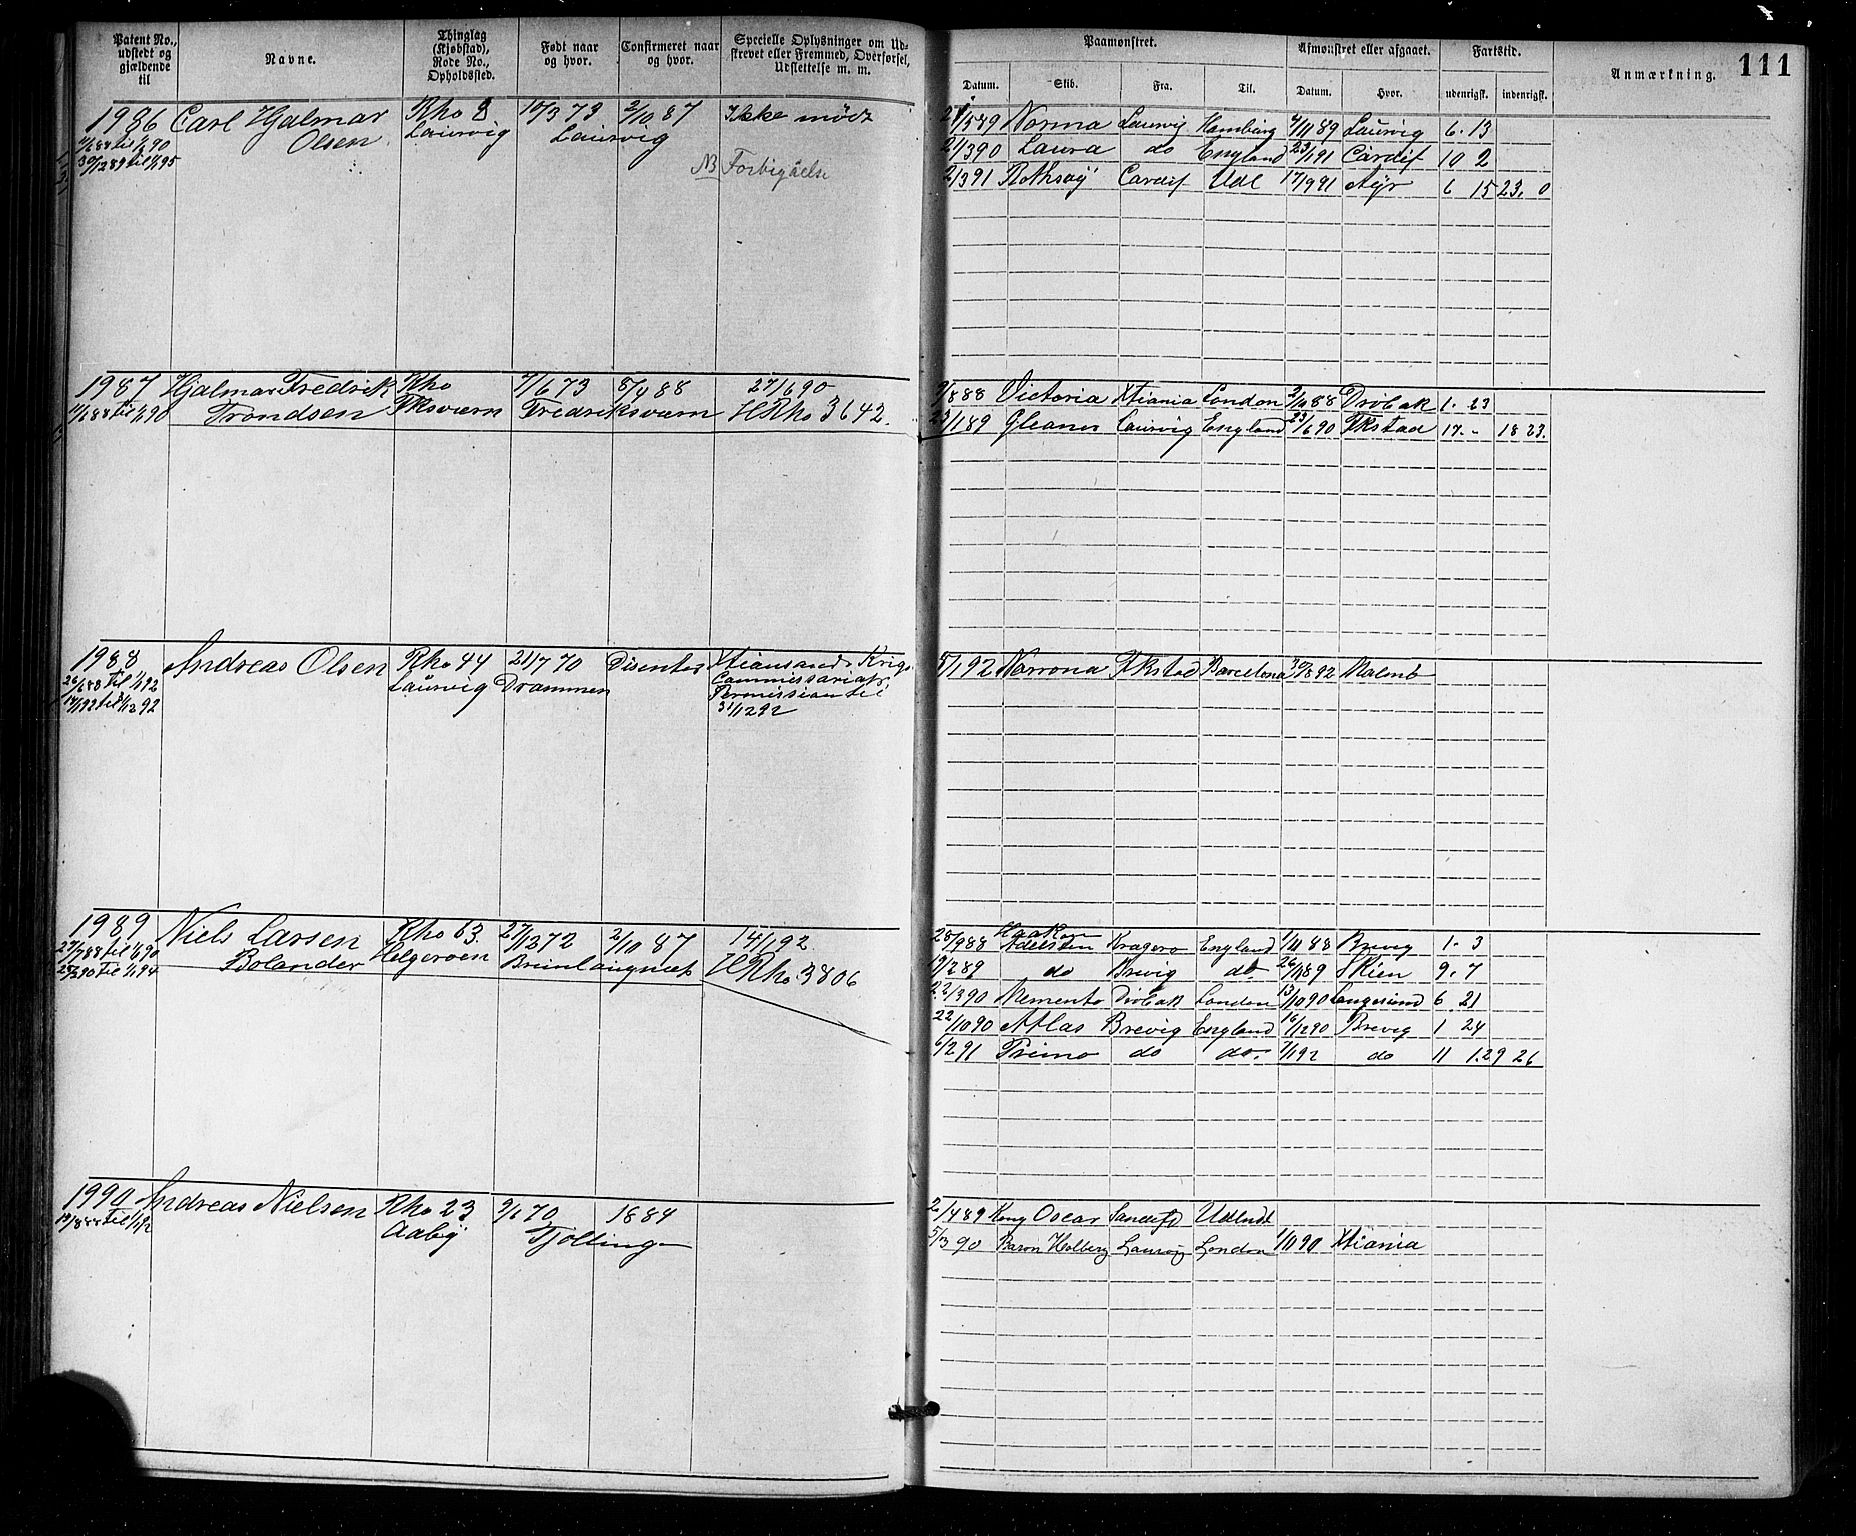 Patent No., udstedt og gjældende til
Navne.
Thinglag (Kjøbstad), Rode No., Opholdssted.
Født naar og hvor.
Confirmeret naar og hvor.
Specielle Oplysninger om Udskrevet eller Fremmed, Overførsel, Udslettelse m. m.
Paamønstret.
Afmønstret eller afgaaet.
Fartstid.
Anmærkning.
111
Datum. Skib. Fra. Til. Datum. Hvor. udenrigsk. indenrigsk.
1986 Carl Hjalmar Olsen
30/12 89 til 1/1 95
Rho 8 Laurvig
10/3 73 2/10 87 Laurvig
Ikke mödt
NB Forbigåelse
21/5 89 Norma Laurvig Hamburg 4/11 89 Laurvig 6. 13
2/3 90 Laura do England 23/1 91 Cardif 10 2
2/3 91 Rothsay Cardif Udl 17/9 91 Ayr 6 15 23. 0
1987 Hjalmar Fredrik Trondsen
Rho Fksværn
7/6 73 8/4 88 Fredriksværn
27/6 90 HRho 3642.
9/8 88 Victoria Xtiania London 2/10 88 Dröbak 1. 23
23/1 89 Gleaner Laurvig England 23/6 90 Fkstad 17. - 18 23.
1988 Andreas Olsen
26/6 88 til 1/1 92
14/1 92 til 31/12 92
Rho 44 Laurvig
21/7 70 Drammen
Disenter
Xtiansands Krigs Commissariats Permission til 31/12 92
5/1 92 Norrona Fkstad Barcelona 30/8 92 Malmö
1989 Niels Larsen Bolander
27/7 88 til 1/1 90
Rho 63. Helgeroen
27/12 72 2/10 87 Brunlaugnæs
14/1 92 HRho 3806
25/9 88 Haakon Adelsten Kragerö England 1/11 88 Brevig 1. 3
19/2 89 do Brevig do. 26/11 89 Skien 9. 7
22/3 90 Memento Dröbak London 13/10 90 Langesund 6 21
22/10 90 Atlas Brevig England 16/12 90 Brevig 1 24
6/2 91 Primo do do. 7/1 92 do 11 1. 29 26
1990 Andreas Nielsen
Rho 23 Aaby
9/6 70 1884 Tjölling
2/4 89 Kong Oscar Sandefd Udlndt
5/3 90 Baron Holberg Laurvig London 1/11 90 Xtiania